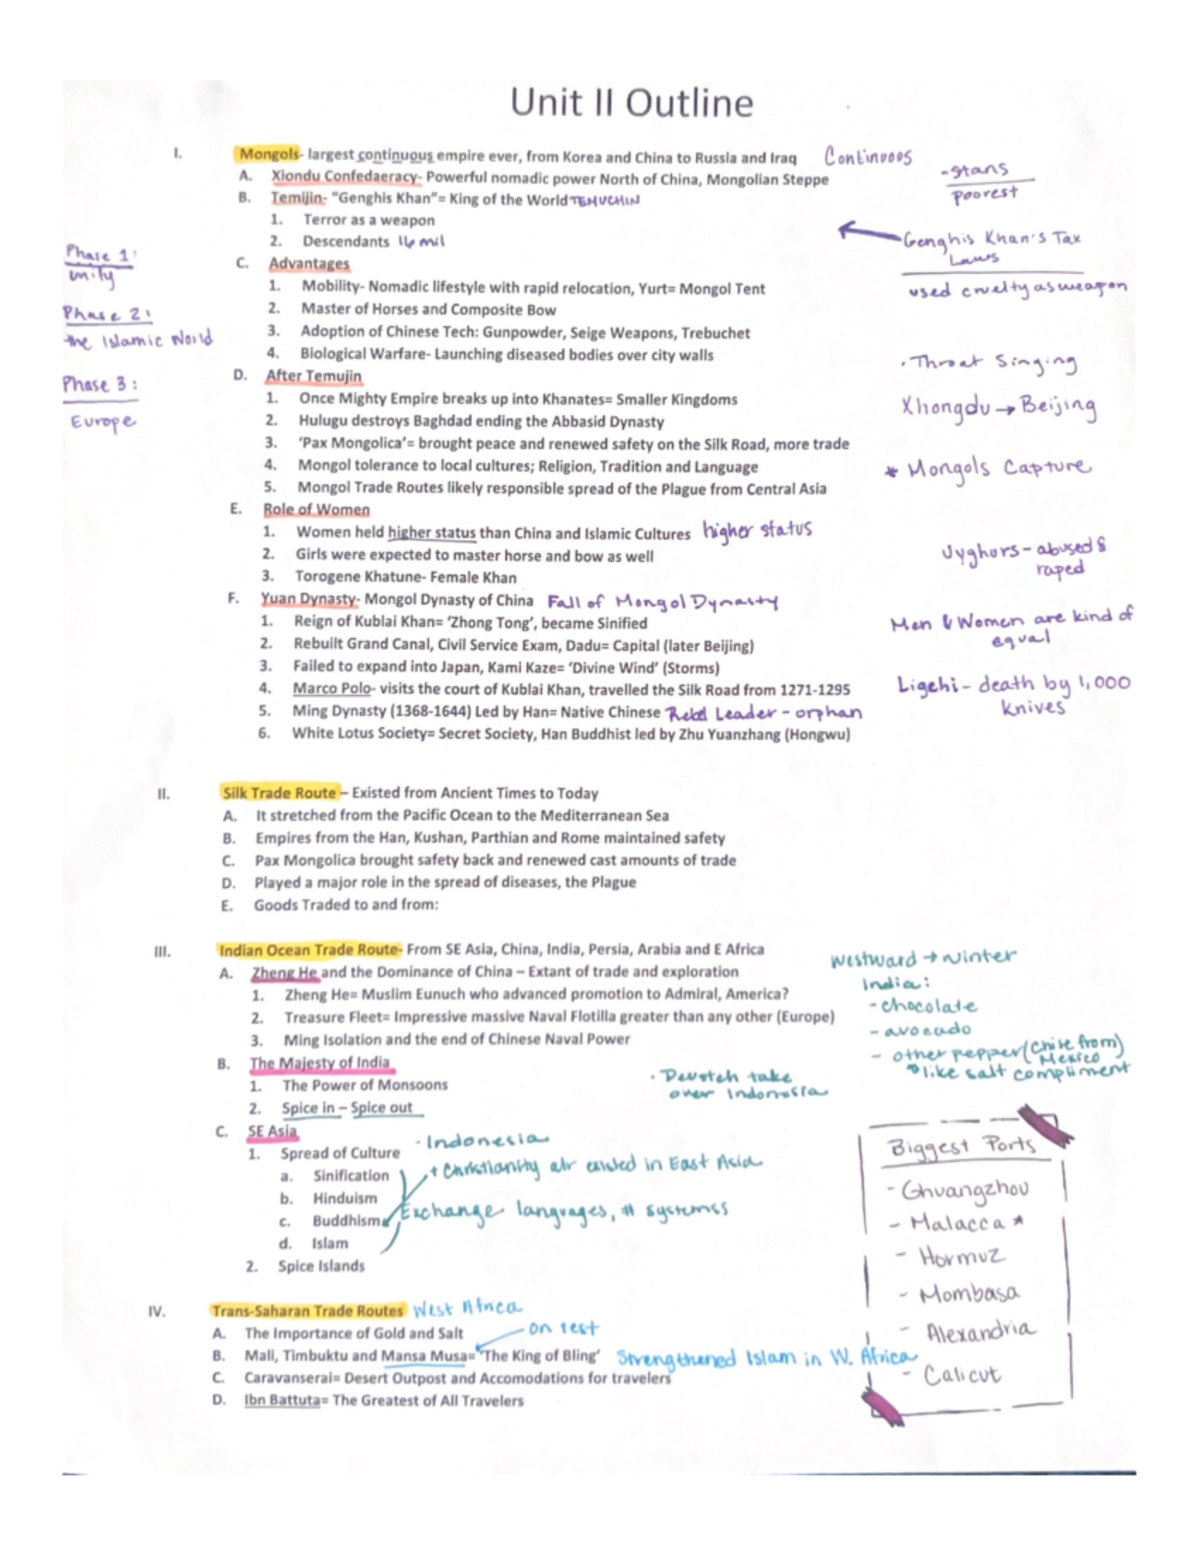 Unit II Outline
I. Mongols- largest continuous empire ever, from Korea and China to Russia and Iraq Continuos
A. Xiondu Confedaeracy- Powerful nomadic power North of China, Mongolian Steppe
-stans
poorest
B. Temijin- “Genghis Khan”= King of the World TEMUCHIN
1. Terror as a weapon
2. Descendants 16 mil
Genghis Khan's Tax
Laws
used cruelty as weapon
Phase 1:
unify
Phase 2:
the Islamic World
Phase 3:
Europe
C. Advantages
1. Mobility- Nomadic lifestyle with rapid relocation, Yurt= Mongol Tent
2. Master of Horses and Composite Bow
3. Adoption of Chinese Tech: Gunpowder, Seige Weapons, Trebuchet
4. Biological Warfare- Launching diseased bodies over city walls
• Throat Singing
D. After Temujin
1. Once Mighty Empire breaks up into Khanates= Smaller Kingdoms
Xhongdu → Beijing
2. Hulugu destroys Baghdad ending the Abbasid Dynasty
3. ‘Pax Mongolica’= brought peace and renewed safety on the Silk Road, more trade
4. Mongol tolerance to local cultures; Religion, Tradition and Language
* Mongols Capture
5. Mongol Trade Routes likely responsible spread of the Plague from Central Asia
E. Role of Women
1. Women held higher status than China and Islamic Cultures higher status
2. Girls were expected to master horse and bow as well
3. Torogene Khatune- Female Khan
Uyghurs - abused &
raped
F. Yuan Dynasty- Mongol Dynasty of China Fall of Mongol Dynasty
1. Reign of Kublai Khan= ‘Zhong Tong’, became Sinified
Men & Women are kind of
equal
2. Rebuilt Grand Canal, Civil Service Exam, Dadu= Capital (later Beijing)
3. Failed to expand into Japan, Kami Kaze= ‘Divine Wind’ (Storms)
4. Marco Polo- visits the court of Kublai Khan, travelled the Silk Road from 1271-1295
Ligchi - death by 1,000
knives
5. Ming Dynasty (1368-1644) Led by Han= Native Chinese Rebel Leader - orphan
6. White Lotus Society= Secret Society, Han Buddhist led by Zhu Yuanzhang (Hongwu)
II. Silk Trade Route – Existed from Ancient Times to Today
A. It stretched from the Pacific Ocean to the Mediterranean Sea
B. Empires from the Han, Kushan, Parthian and Rome maintained safety
C. Pax Mongolica brought safety back and renewed cast amounts of trade
D. Played a major role in the spread of diseases, the Plague
E. Goods Traded to and from:
III. Indian Ocean Trade Route- From SE Asia, China, India, Persia, Arabia and E Africa
A. Zheng He and the Dominance of China – Extant of trade and exploration
1. Zheng He= Muslim Eunuch who advanced promotion to Admiral, America?
2. Treasure Fleet= Impressive massive Naval Flotilla greater than any other (Europe)
3. Ming Isolation and the end of Chinese Naval Power
westward → winter
India:
- chocolate
- avocado
- other pepper (Chile from)
Mexico
like salt compliment
B. The Majesty of India
1. The Power of Monsoons
2. Spice in – Spice out
• take
over Indonesia
C. SE Asia
1. Spread of Culture
a. Sinification
b. Hinduism
c. Buddhism
d. Islam
2. Spice Islands
- Indonesia
+ Christianity alr existed in East Asia
Exchange languages, # systemss
Biggest Ports
- Ghuangzhou
- Malacca *
- Hormuz
- Mombasa
- Alexandria
- Calicut
IV. Trans-Saharan Trade Routes West Africa
A. The Importance of Gold and Salt
on test
B. Mali, Timbuktu and Mansa Musa= ‘The King of Bling’ Strengthened Islam in W. Africa
C. Caravanserai= Desert Outpost and Accomodations for travelers
D. Ibn Battuta= The Greatest of All Travelers